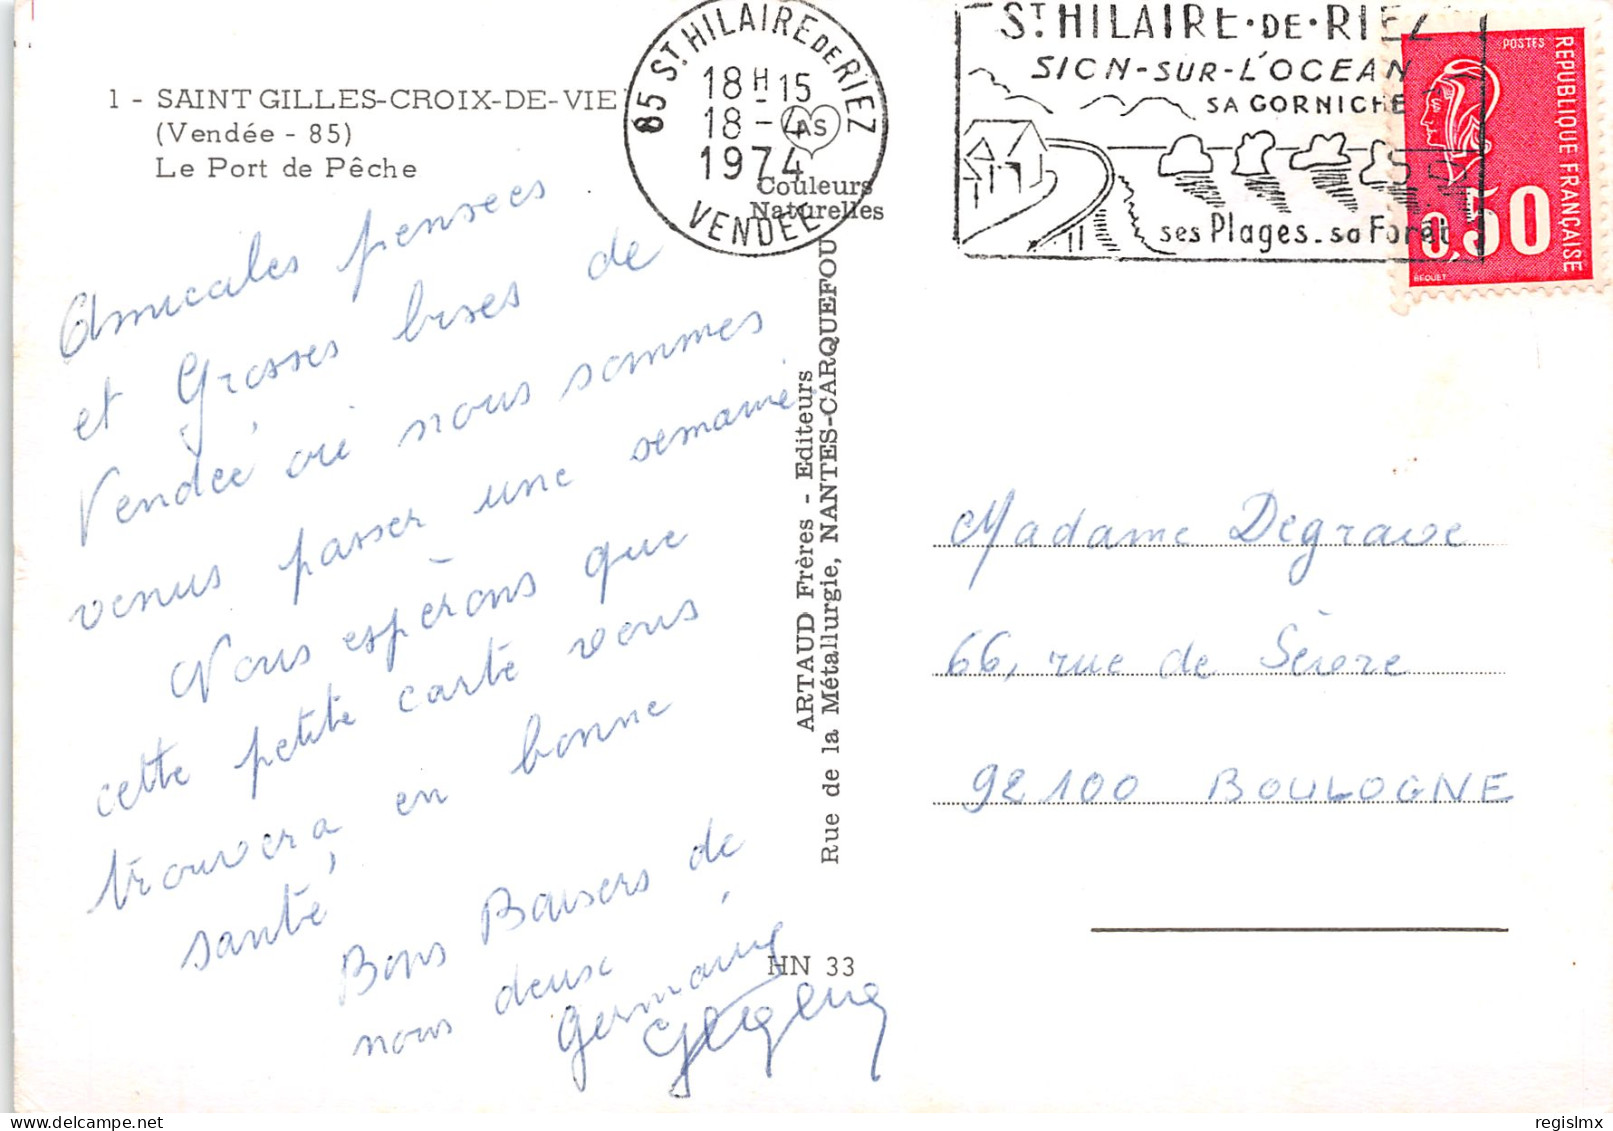 1 - SAINT GILLES-CROIX-DE-VIE
(Vendée - 85)
Le Port de Pêche
85 ST HILAIRE DE RIEZ
18H-15
18-4
1974
VENDEE
AS
Couleurs
Naturelles
ST HILAIRE-DE-RIEZ
SION-SUR-L'OCEAN
SA CORNICHE
ses Plages_sa Forêt
POSTES
REPUBLIQUE FRANÇAISE
0,50
BEQUET
Amicales pensées
et Grosses bises de
Vendée où nous sommes
venus passer une semaine.
Nous espérons que
cette petite carte vous
trouvera en bonne
santé,
Bons Baisers de
nous deux
Germaine
ARTAUD Frères - Editeurs
Rue de la Métallurgie, NANTES-CARQUEFOU
HN 33
Madame Degrave
66, rue de Sèvre
92100 BOULOGNE
regislmx